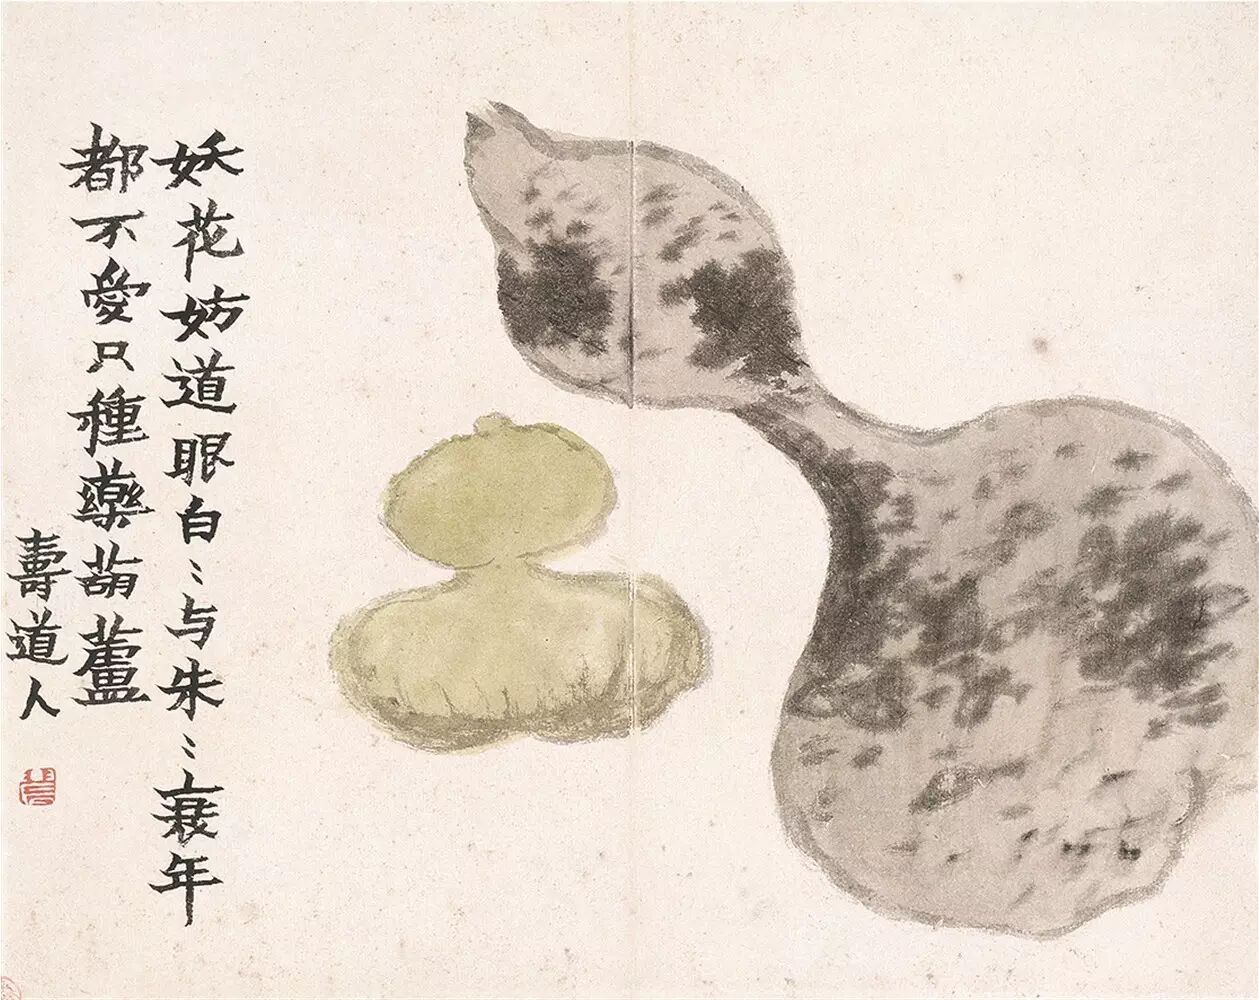 妖花妨道眼白〻与朱〻衰年
都不愛只種藥葫蘆
壽道人